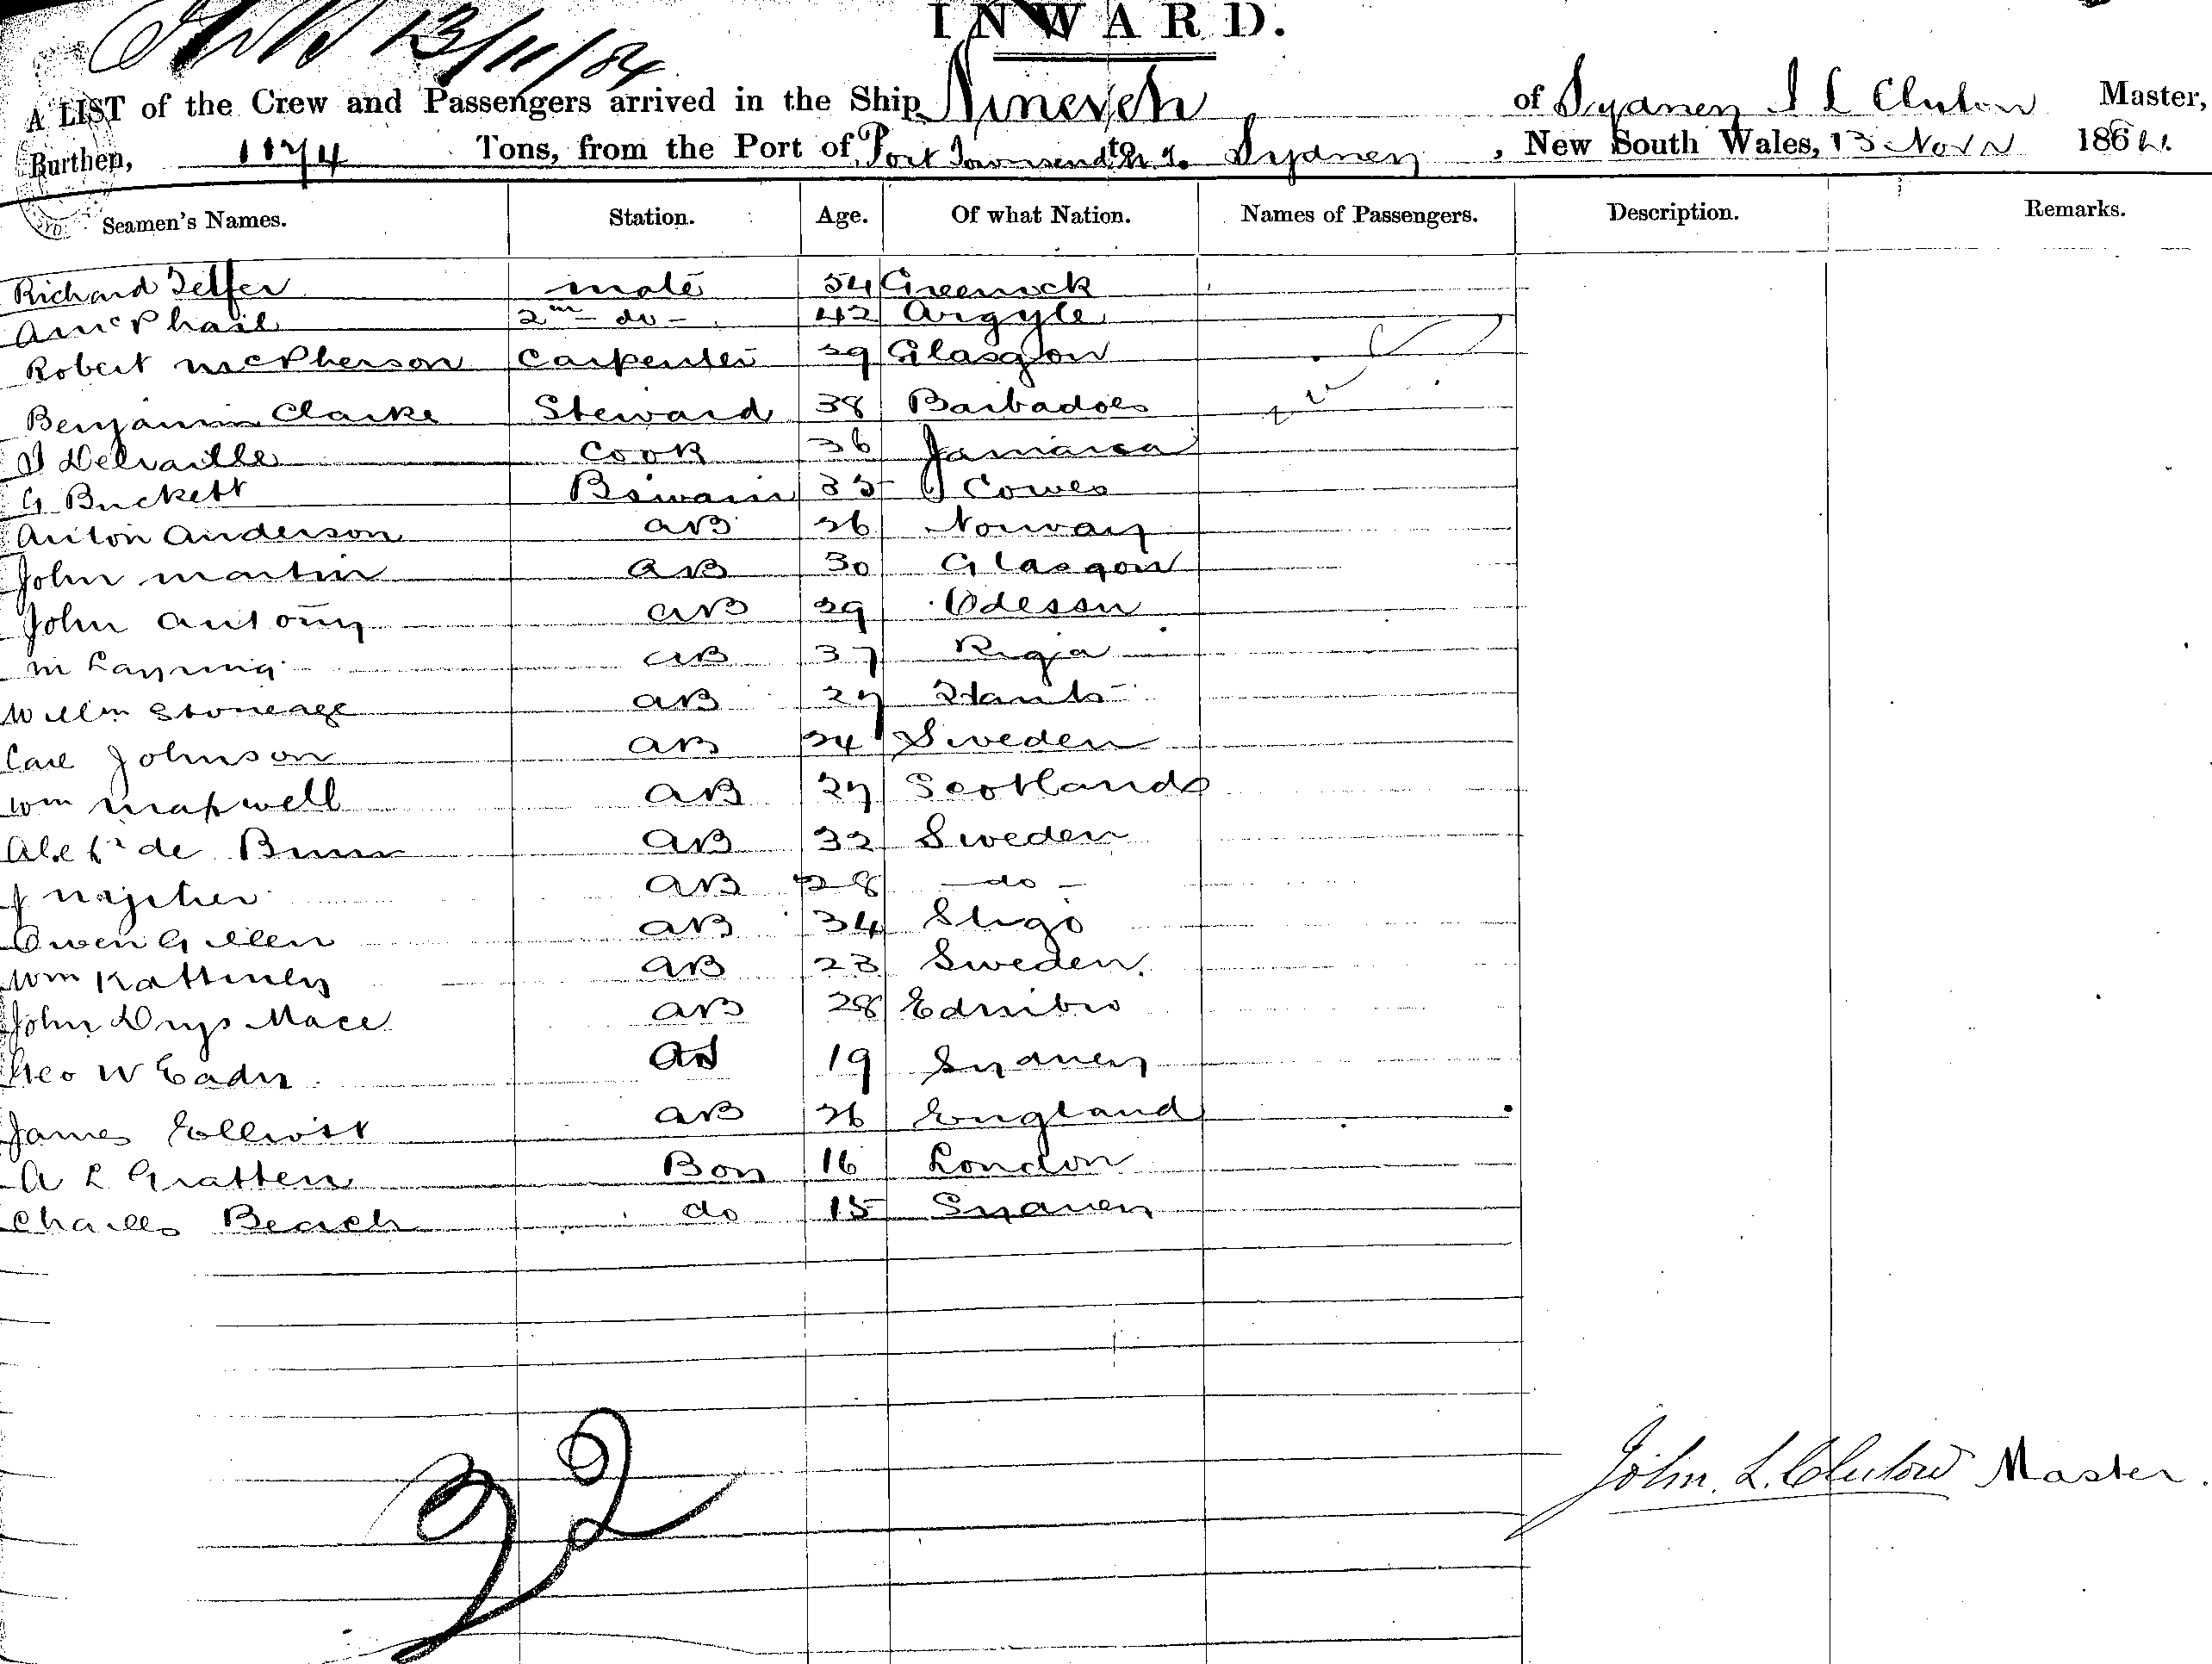 13/11/84
INWARD.
A LIST of the Crew and Passengers arrived in the Ship Nineveh of Sydney J L Clulow Master,
Burthen, 1174 Tons, from the Port of Port Townsend to Sydney, New South Wales, 13 Nov 186
Seamen's Names. Station. Age. Of what Nation. Names of Passengers. Description. Remarks.
Richard Telfer mate 54 Greenock
A McPhail 2nd do - 42 Argyle
Robert McPherson Carpenter 29 Glasgow
Benjamin Clarke Steward 38 Barbadoes
Cook 36 Jamaica
G Buckett Bswain 35 Cowes
Anton Anderson AB 26 Norway
John Martin AB 30 Glasgow
John Antony AB 29 Odessa
M AB 37 Riga
Willm Stoneage AB 27 Hants
Carl Johnson AB 24 Sweden
Wm Maxwell AB 27 Scotland
Alexr de AB 32 Sweden
J AB 28 - do -
Owen Gillen AB 34 Sligo
Wm AB 23 Sweden.
John AB 28 Edinbro
Geo W Eady 19 Sydney
James Elliott AB 26 England
A L Gratten Boy 16 London
Charles Beach do 15 Sydney
22
John. L. Clulow Master.